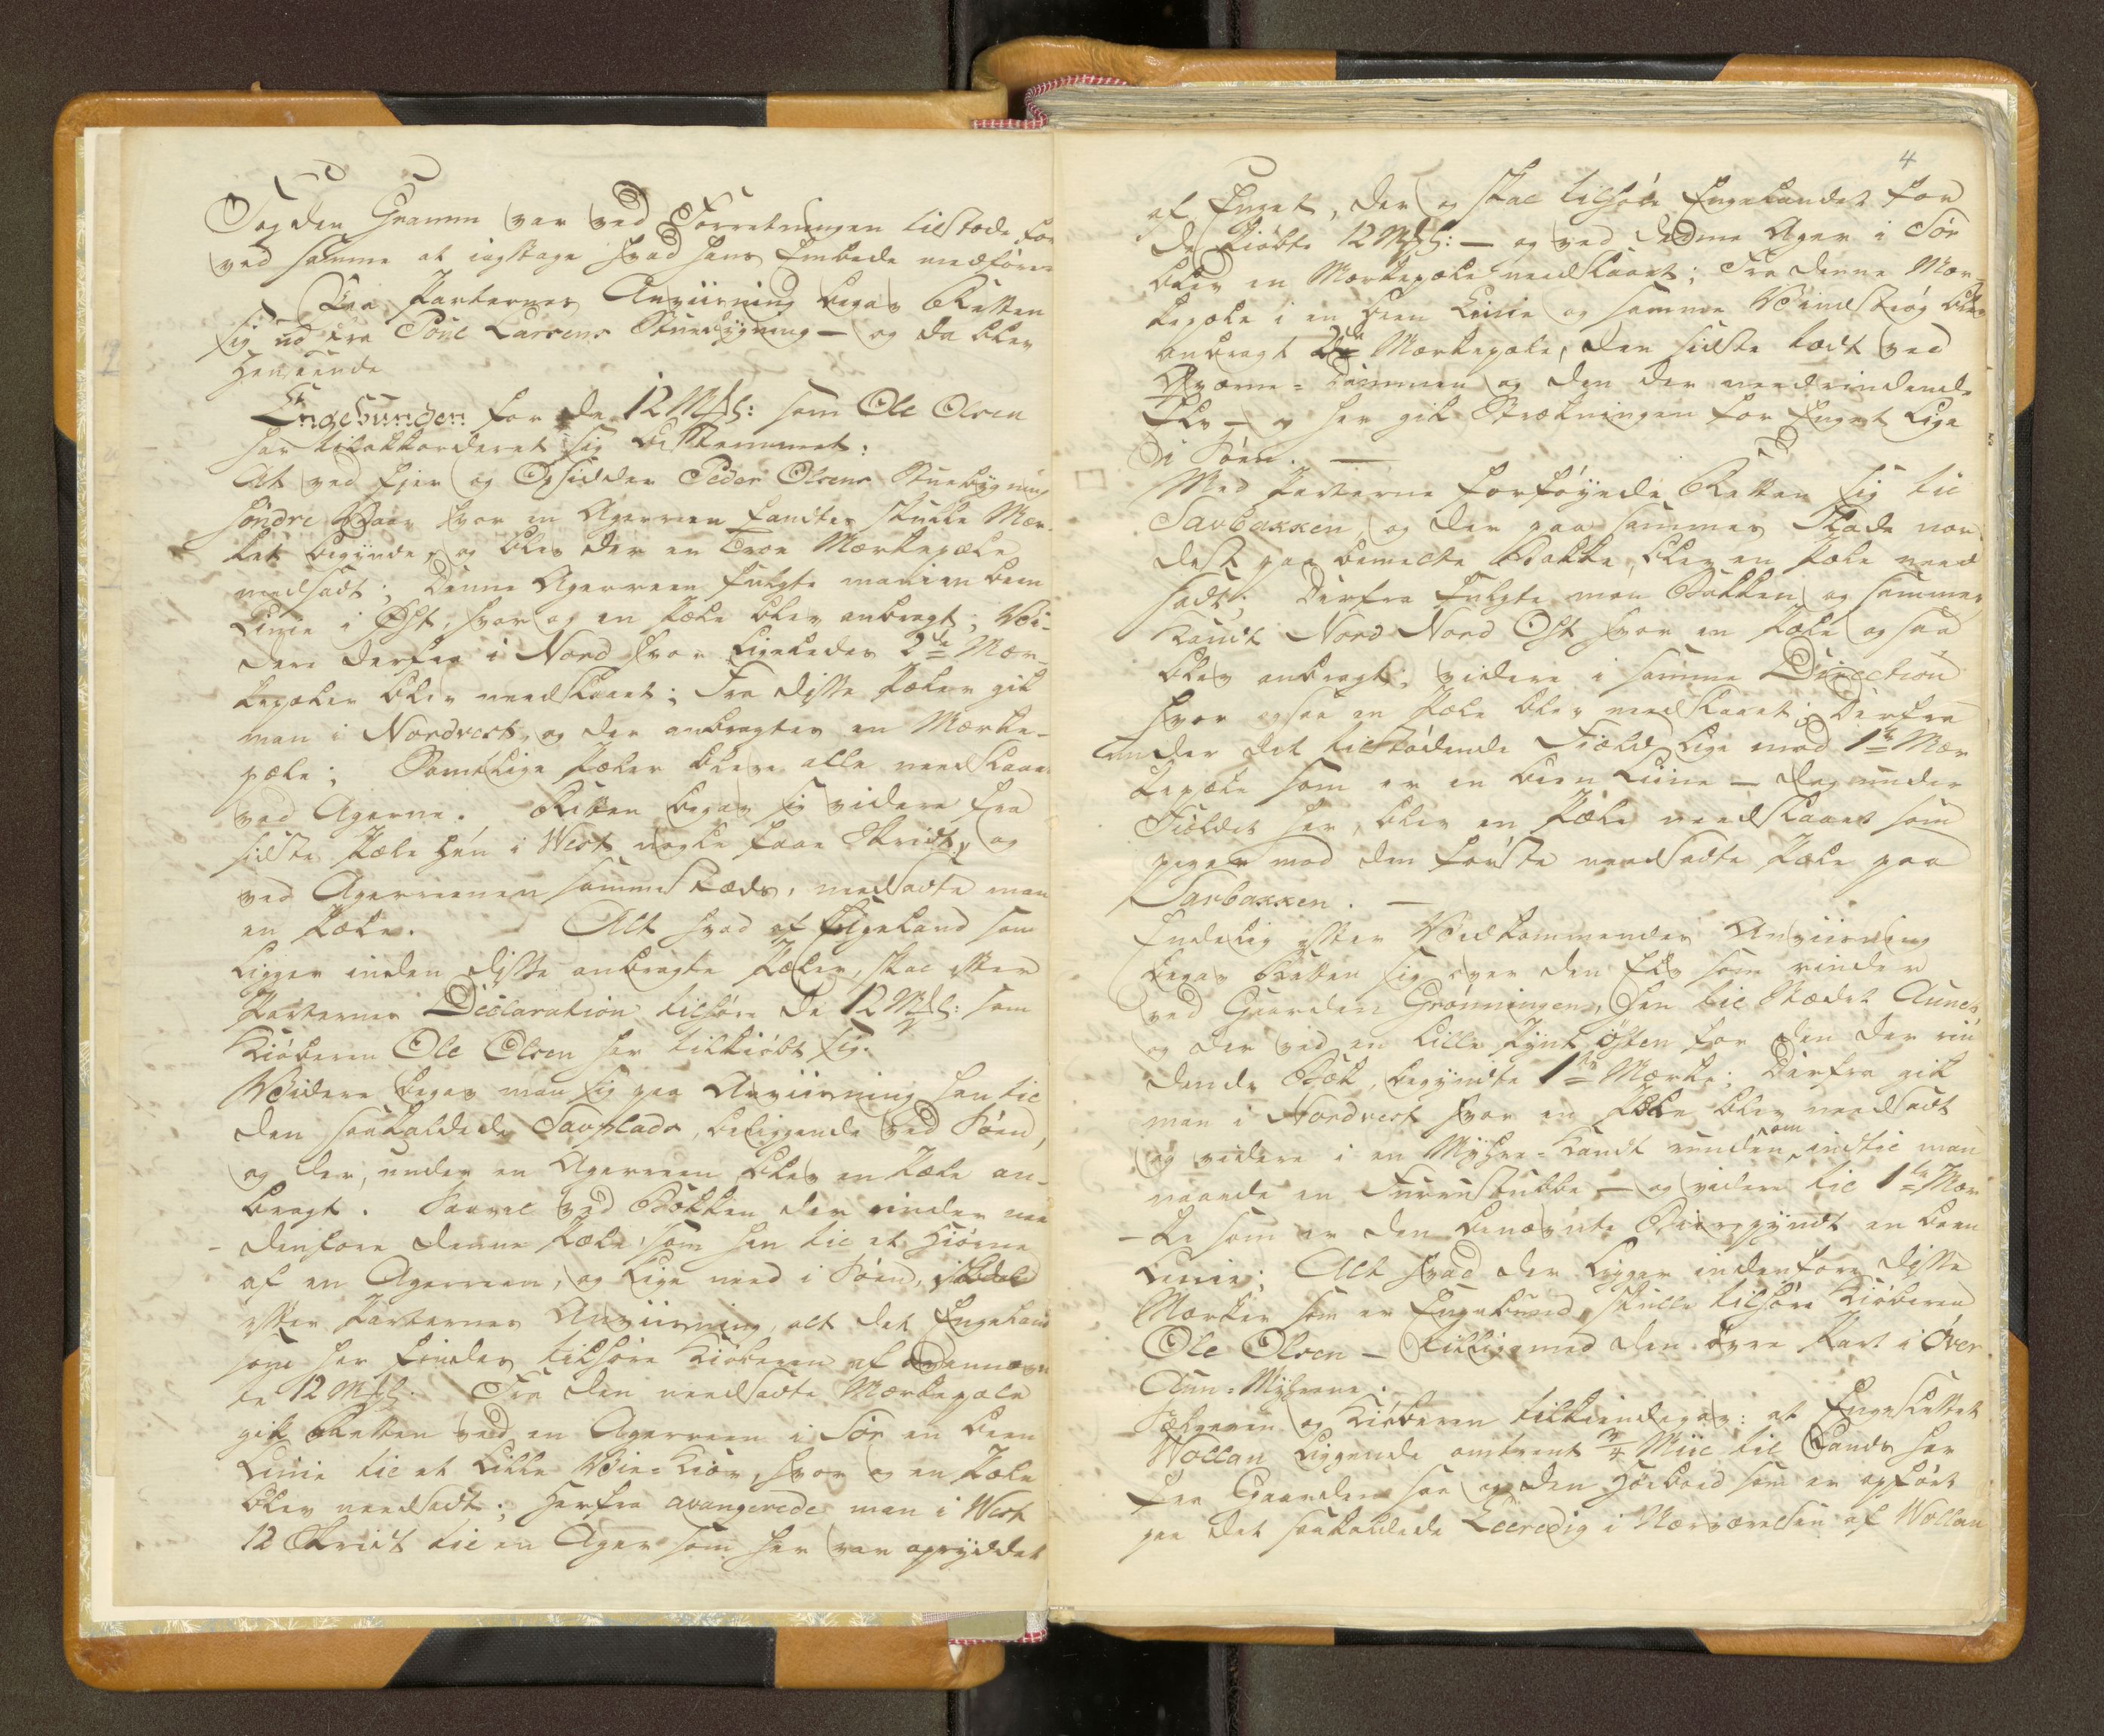 Fogden Gramm var ved Forretningen tilstæde for
ved samme at iagttage hvad hans Embede medfører
Paa Parternes Anviisning begav Retten
sig ud fra Poul Larsens Stuebÿgning – og da blev
Henseende
Engebunden for de 12 Mkl: som Ole Olsen
har tilakkorderet sig bestemmet:
At ved Ejer og Opsidder Peder Olsens Stuebÿgning
søndre hvor en Agerreen fandtes skulle Mær-
ket begynde, og blev der en Træe Mærkepæle
nedsadt; Denne Agerreen fulgte man i en been
Linie i Øst, hvor og en Pæle blev anbragt; Vi-
dere derfra i Nord hvor ligeledes 2de Mær-
kepæler blev needslaaet; Fra disse Pæler gik
man i Nordvest, og der anbragtes en Mærke-
pæle; Samtlige Pæler bleve alle needslaaet
ved Agerne. Retten begav sig videre fra
sidste Pæle hen i West nogle faae Skridt, og
ved Agerreenen sammestæds, nedsadte man
en Pæle. Alt hvad af Engeland som
ligger inden disse anbragte Pæler, skal efter
Parternes Declaration tilhøre de 12 Mkl: som
Kiøberen Ole Olsen har tilkiøbt sig.
Videre begav man sig paa Anviisning hen til
den saakaldede Savplads, beliggende ved Søen,
og der, under en Agerreen blev en Pæle an-
bragt. Saavel ved Bækken der rinder nee
denfore denne Pæle, som hen til et Hiørne
af en Agerreen, og lige need i Søen,
efter Parternes Anviisning, alt det Engeland
som her findes tilhøre Kiøberen af
te 12 Mkl. Fra den needsadte Mærkepæle
gik Retten ved en Agerreen i Sør en been
Linie til et lille Vie-Kiær, hvor og en Pæle
blev needsadt; herfra avangerede man i West
12 Skridt til en Ager som her var oprÿddet
4
af Enget, der og skal tilhøre Engelandet for
de kiøbte 12 Mkl: – og ved denne Ager i Sør
blev en Mærkepæle needslaaet; Fra denne Mær-
kepæle i en been Linie og samme Vindstrøg blev
anbragt 2de Mærkepæle, den sidste tædt ved
Qværne-Dammen og den der needrindende
Elv – og her gik Strækningen for Enget lige
i Søen. –
Med Parterne forføyede Retten sig til
Savbakken, og der paa sammes Flade nor
dest paa bemelte Bakke, blev en Pæle need
sadt; Derfra fulgte man Bakken og sammes
Kandt Nord Nord Ost hvor en Pæle og saa
blev anbragt, videre i samme Direction
hvor ogsaa en Pæle blev needslaaet; Derfra
under det tilstødende Fiæld lige mod 1te Mær
kepæle som er en been Linie – dog under
Fiældet her, blev en Pæle needslaaet som
peger mod den første needsadte Pæle paa
Savbakken. –
Endelig efter Vedkommendes Anviisning
begav Retten sig over den Elv som rinder
ved Gaarden Grønningen, hen til Stædet Aunet,
og der ved en lille Pÿnt østen for den der rin
dende Bæk, begyndte 1te Mærke; Derfra gik
man i Nordvest hvor en Pæle blev needsadt
og videre i en Mÿhre-Kandt runden om indtil man
naaede en Furrustubbe – og videre til 1te Mær
-ke som er den benævnte pÿndt en been
Linie; Alt hvad der ligger indenfore disse
Mærker som er Engebund, skulle tilhøre Kiøberen
Ole Olsen – tilligemed den øvre Part i Øver
Aun-Mÿhrene.
Sælgeren og Kiøberen tilkiendegav: at Engeslættet
Wollan liggende omtrent 3/4 Miil til Lands her
fra Gaarden saa og den Høebod som er opført
paa det saakaldede Leeredig i Nærværelsen af Wollan